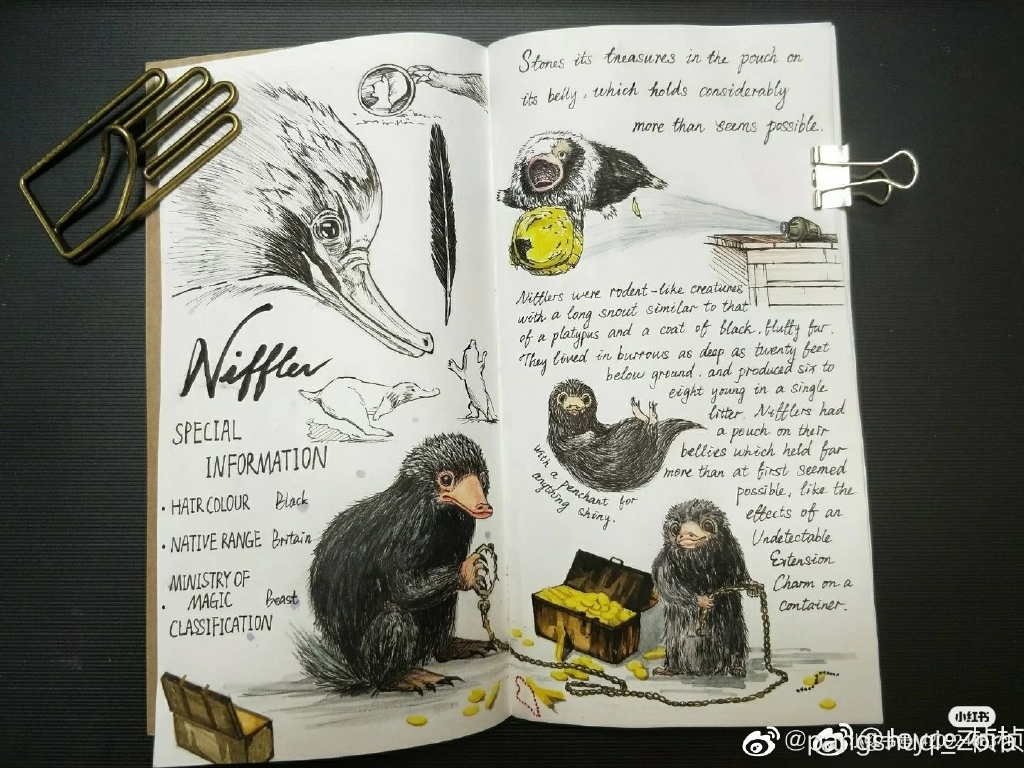 Niffler
SPECIAL
INFORMATION
· HAIR COLOUR Black
· NATIVE RANGE Britain
MINISTRY OF
· MAGIC Beast
CLASSIFICATION
Stores its treasures in the pouch on
its belly, which holds considerably
more than seems possible.
Nifflers were rodent-like creatures
with a long snout similar to that
of a platypus and a coat of black, fluffy fur.
They lived in burrows as deep as twenty feet
below ground, and produced six to
eight young in a single
litter. Nifflers had
a pouch on their
bellies which held far
more than at first seemed
possible, like the
effects of an
Undetectable
Extension
Charm on a
container.
with a penchant for
anything shiny.
小红书